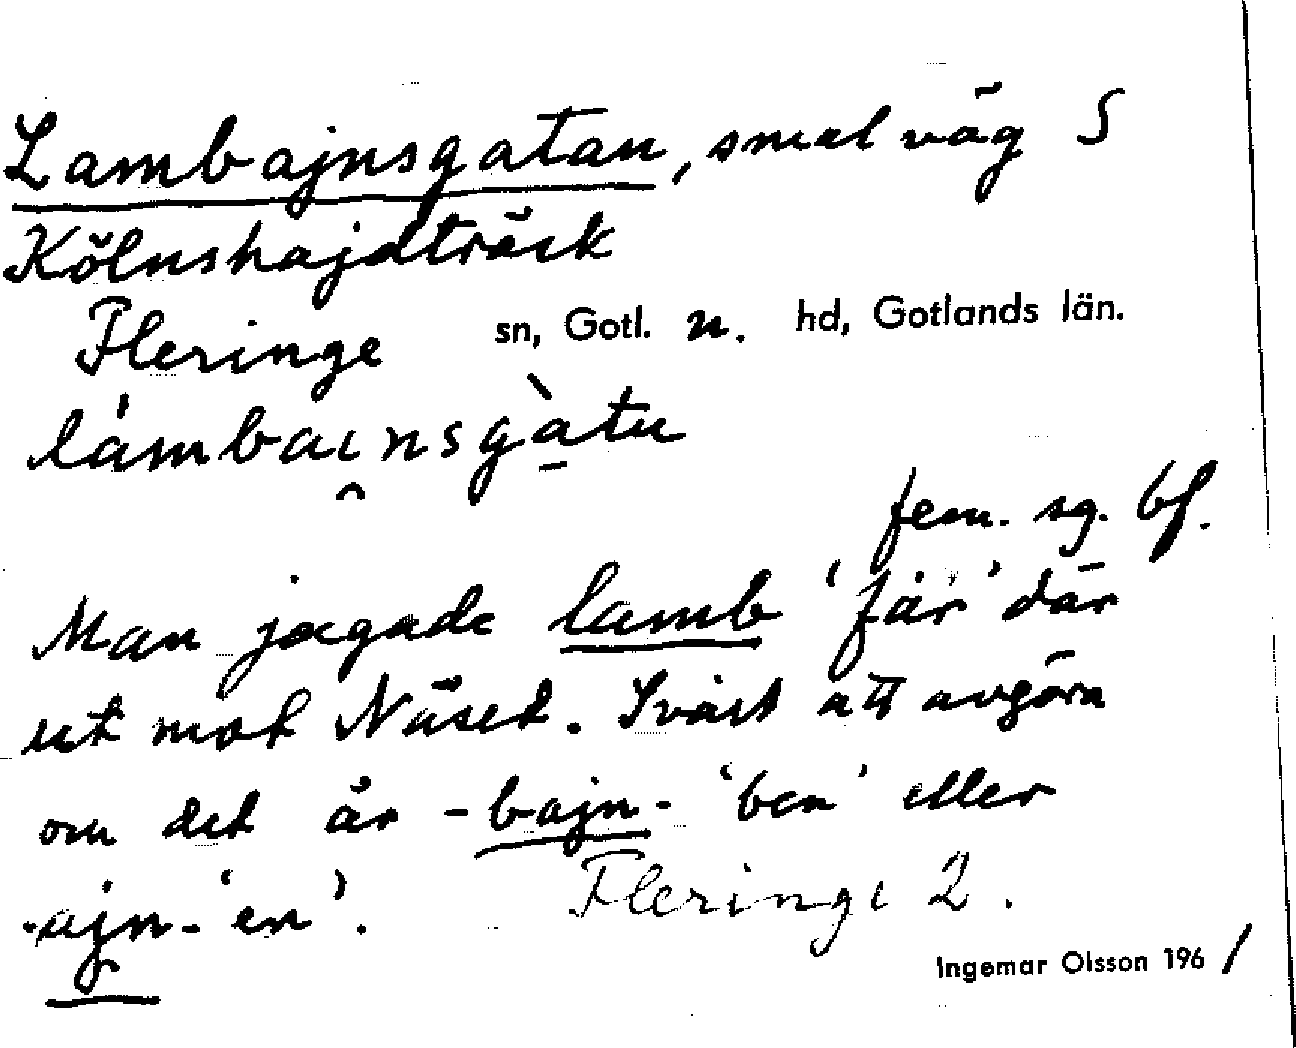 Lambajnsgatan, smal väg S
Kölnshajdträsk
Fleringe sn, Gotl. n. hd, Gotlands län.
lámbai̯nsgà̠tu
fem. sg. bf.
Man jagade lamb 'får' där
ut mot Näset. Svårt att avgöra
om det är -bajn- 'ben' eller
-ajn- 'en'. Fleringe 2.
Ingemar Olsson 1961